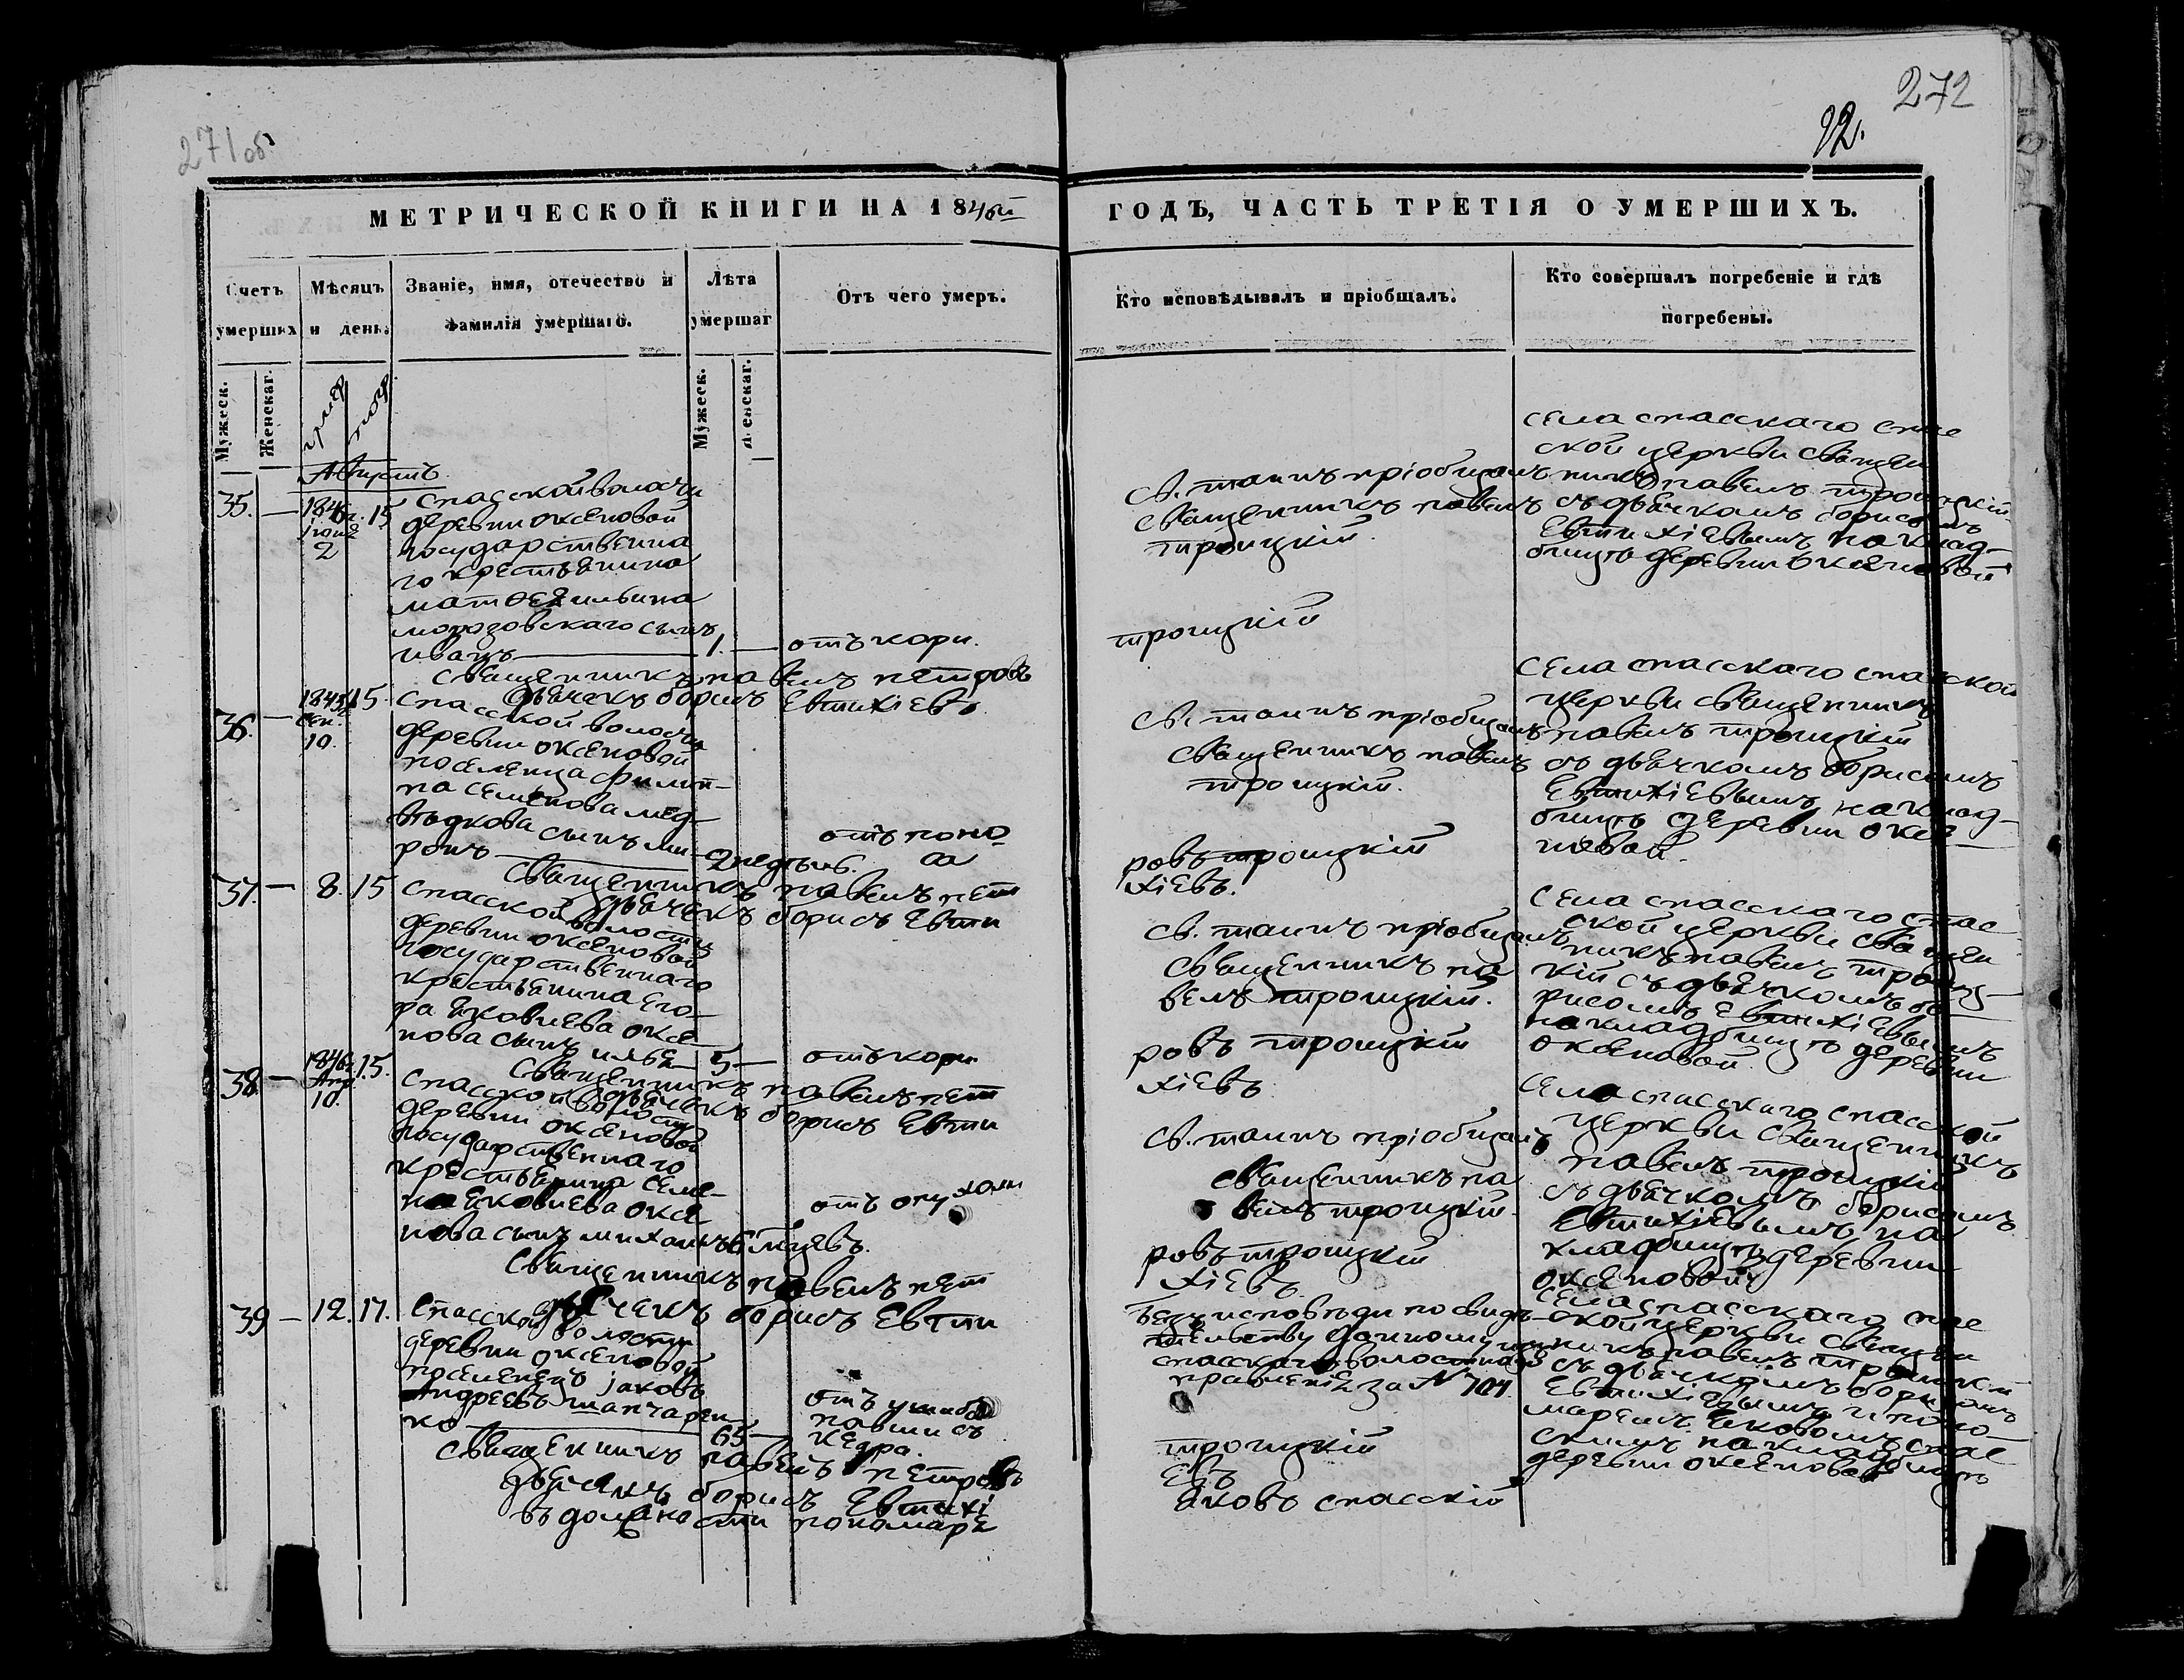 271об.
272
92.
МЕТРИЧЕСКОЙ КНИГИ НА 1846й
ГОДЪ, ЧАСТЬ ТРЕТІЯ О УМЕРШИХЪ.
Счетъ умерших
Мѣсяцъ и день.
Званіе, имя, отечество и
Фамилія умершаго.
Лѣта
умершаг
Отъ чего умеръ.
Кто исповѣдывалъ и пріобщалъ.
Кто совершалъ погребеніе и гдѣ
погребены.
Мужеск.
Женскаг.
Мужеск.
Женскаг.
Августъ
35. — 1846г. 15
іюня
2
Спасской волости
деревни оксеновой
государственна
го крестьянина
матѳея ильина
морозовскаго сынъ
иванъ — 1. — отъ кори.
Св. таинъ пріобщалъ
священникъ павелъ
троицкій.
села спасскаго спас
ской церкви священ
никъ павелъ троицкій
съ дьячкомъ борисомъ
Евтихіевымъ на клад-
бищѣ деревни оксеновой
священникъ павелъ петровъ
троицкій
дьячекъ борисъ Евтихіевъ.
36. — 1845г. 15.
сен.
10.
Спасской волости
деревни оксеновой
поселенца филип-
па семенова мед-
вѣдкова сынъ ми-
ронъ — 2 недѣль. отъ поно
са
Св. таинъ пріобщалъ
священникъ павелъ
троицкій.
села спасскаго спасской
церкви священникъ
павелъ троицкій
съ дьячкомъ борисомъ
Евтихіевымъ на клад-
бищѣ деревни оксе-
новой.
священникъ павелъ пет
ровъ троицкій
дьячекъ борисъ Евти
хіевъ.
37. — 8. 15
спасской волости
деревни оксеновой
государственнаго
крестьянина его-
ра яковлева оксе-
нова сынъ илья — 5 — отъ кори
Св. таинъ пріобщалъ
священникъ па
велъ троицкій.
села спасскаго спас
ской церкви священ
никъ павелъ троиц-
кій съ дьячкомъ бо-
рисомъ Евтихіевымъ
на кладбищѣ деревни
оксеновой.
священникъ павелъ пет
ровъ троицкій
дьячекъ борисъ Евти
хіевъ
38. — 1846г. 15.
Апр.
10.
спасской волости
деревни оксеновой
государственнаго
крестьянина семе-
на яковлева оксе
нова сынъ михаилъ 6 мцевъ. отъ опухоли
Св. таинъ пріобщалъ
священникъ па
велъ троицкій.
села спасскаго спасской
церкви священникъ
павелъ троицкій
съ дьячкомъ борисомъ
Евтихіевымъ на
кладбищѣ деревни
оксеновой
священникъ павелъ пет
ровъ троицкій
дьячекъ борисъ Евти
хіевъ
39 — 12. 17.
Спасской волости
деревни оксеновой
поселенецъ іаковъ
Андреевъ шапчарен
ко — 65 —
отъ ушиба
павши съ
кедра.
Безъ исповѣди по свидѣ-
тельству данному изъ
спасскаго волостнаго
правленія за № 701
села спасскаго спас
ской церкви священ
никъ павелъ троицкій
съ дьячкомъ борисомъ
Евтихіевымъ и поно-
маремъ яковомъ спас
скимъ на кладбищѣ
деревни оксеновой
священникъ павелъ петровъ
троицкій
дьячекъ борисъ Евтихі
евъ
въ должности пономаря
яковъ спасскій